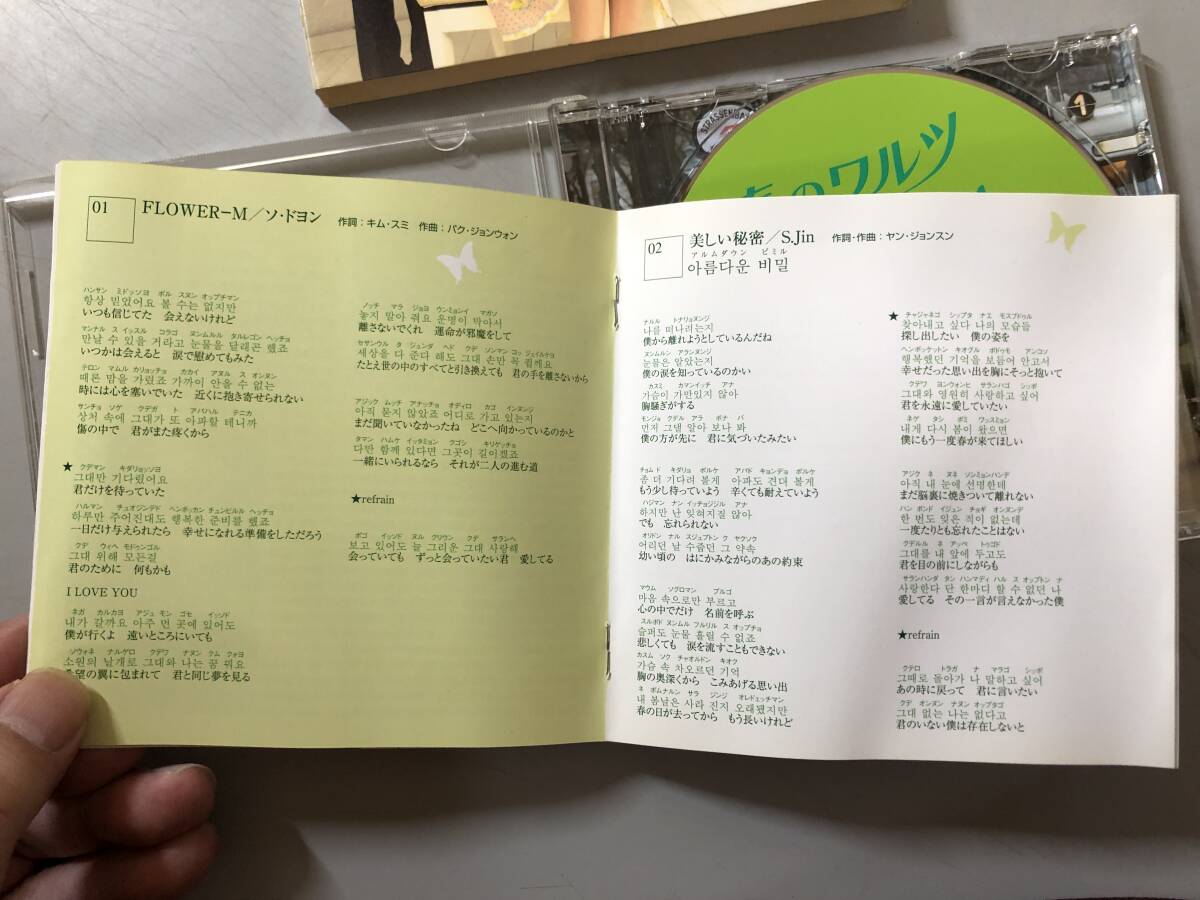 STRASSENBA
1
春のワルツ
01
FLOWER-M/ソ・ドヨン 作詞:キム・スミ 作曲:パク・ジョンウォン
ハンサン ミドッソヨ ボル スヌン オップチマン
항상 믿었어요 볼 수는 없지만
いつも信じてた 会えないけれど
マンナル ス イッスル コラゴ ヌンムルル タルレゴン ヘッチョ
만날 수 있을 거라고 눈물을 달래곤 했죠
いつかは会えると 涙で慰めてもみた
テロン マムル カリョッチョ カカイ アヌル ス オンヌン
때론 맘을 가렸죠 가까이 안을 수 없는
時には心を塞いでいた 近くに抱き寄せられない
サンチョ ソゲ クデガ ト アパハル テニカ
상처 속에 그대가 또 아파할 테니까
傷の中で 君がまた疼くから
★
クデマン キダリョッソヨ
그대만 기다렸어요
君だけを待っていた
ハルマン チュオジンデド ヘンボッカン チュンビルル ヘッチョ
하루만 주어진대도 행복한 준비를 했죠
一日だけ与えられたら 幸せになれる準備をしただろう
クデ ウィヘ モドゥンゴル
그대 위해 모든걸
君のために 何もかも
I LOVE YOU
ネガ カルカヨ アジュ モン ゴセ イッソド
내가 갈까요 아주 먼 곳에 있어도
僕が行くよ 遠いところにいても
ソウォネ ナルゲロ クデワ ナヌン クム クォヨ
소원의 날개로 그대와 나는 꿈 꿔요
希望の翼に包まれて 君と同じ夢を見る
ノッチ マラ ジョヨ ウンミョンイ マガソ
놓지 말아 줘요 운명이 막아서
離さないでくれ 運命が邪魔をして
セサンウル タ ジュンダ ヘド クデ ソンマン コッ ジェイルケヨ
세상을 다 준다 해도 그대 손만 꼭 쥘께요
たとえ世の中のすべてと引き換えても 君の手を離さないから
アジック ムッチ アナッチョ オディロ カゴ インヌンジ
아직 묻지 않았죠 어디로 가고 있는지
まだ聞いていなかったね どこへ向かっているのかと
タマン ハムケ イッタミョン クゴシ キリゲッチョ
다만 함께 있다면 그곳이 길이겠죠
一緒にいられるなら それが二人の進む道
★refrain
ボゴ イッソド ヌル クリウン クデ サランヘ
보고 있어도 늘 그리운 그대 사랑해
会っていても ずっと会っていたい君 愛してる
02
美しい秘密/S.Jin 作詞・作曲:ヤン・ジョンスン
アルムダウン ビミル
아름다운 비밀
ナルル トナリョヌンジ
나를 떠나려는지
僕から離れようとしているんだね
ヌンムルン アランヌンジ
눈물은 알았는지
僕の涙を知っているのかい
カスミ カマンイッチ アナ
가슴이 가만있지 않아
胸騒ぎがする
モンジョ クデル アラ ボナ バ
먼저 그댈 알아 보나 봐
僕の方が先に 君に気づいたみたい
チョム ド キダリョ ボルケ アパド キョンデョ ボルケ
좀 더 기다려 볼게 아파도 견뎌 볼게
もう少し待っていよう 辛くても耐えていよう
ハジマン ナン イッチョジジル アナ
하지만 난 잊혀지질 않아
でも 忘れられない
オリドン ナル スジュプトン ク ヤクソク
어리던 날 수줍던 그 약속
幼い頃の はにかみながらのあの約束
マウム ソグロマン ブルゴ
마음 속으로만 부르고
心の中でだけ 名前を呼ぶ
スルポド ヌンムル フルリル ス オップチョ
슬퍼도 눈물 흘릴 수 없죠
悲しくても 涙を流すこともできない
カスム ソク チャオルドン キオク
가슴 속 차오르던 기억
胸の奥深くから こみあげる思い出
ネ ボムナルン サラ ジンジ オレドェッチマン
내 봄날은 사라 진지 오래됐지만
春の日が去ってから もう長いけれど
★
チャジャネゴ シップタ ナエ モスプドゥル
찾아내고 싶다 나의 모습들
探し出したい 僕の姿を
ヘンボッケットン キオグル ボドゥモ アンコソ
행복했던 기억을 보듬어 안고서
幸せだった思い出を胸にそっと抱いて
クデワ ヨンウォンヒ サランハゴ シッポ
그대와 영원히 사랑하고 싶어
君を永遠に愛していたい
ネゲ タシ ボミ ワッスミョン
내게 다시 봄이 왔으면
僕にもう一度春が来てほしい
アジク ネ ヌネ ソンミョンハンデ
아직 내 눈에 선명한데
まだ脳裏に焼きついて離れない
ハン ボンド イジュン チョギ オンヌンデ
한 번도 잊은 적이 없는데
一度たりとも忘れたことはない
クデルル ネ アッペ トゥゴド
그대를 내 앞에 두고도
君を目の前にしながらも
サランハンダ タン ハンマディ ハル ス オップトン ナ
사랑한다 단 한마디 할 수 없던 나
愛してる その一言が言えなかった僕
★refrain
クテロ トラガ ナ マラゴ シッポ
그때로 돌아가 나 말하고 싶어
あの時に戻って 君に言いたい
クデ オンヌン ナヌン オップタゴ
그대 없는 나는 없다고
君のいない僕は存在しないと